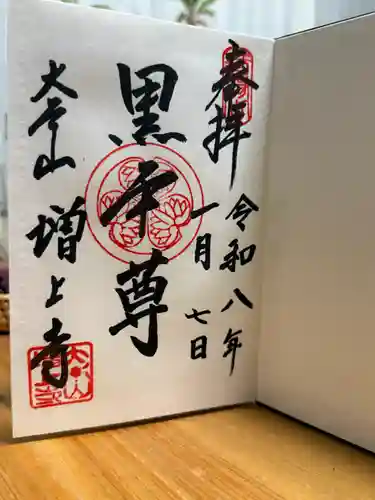 奉拝
令和八年
一月七日
黒本尊
大本山
増上寺